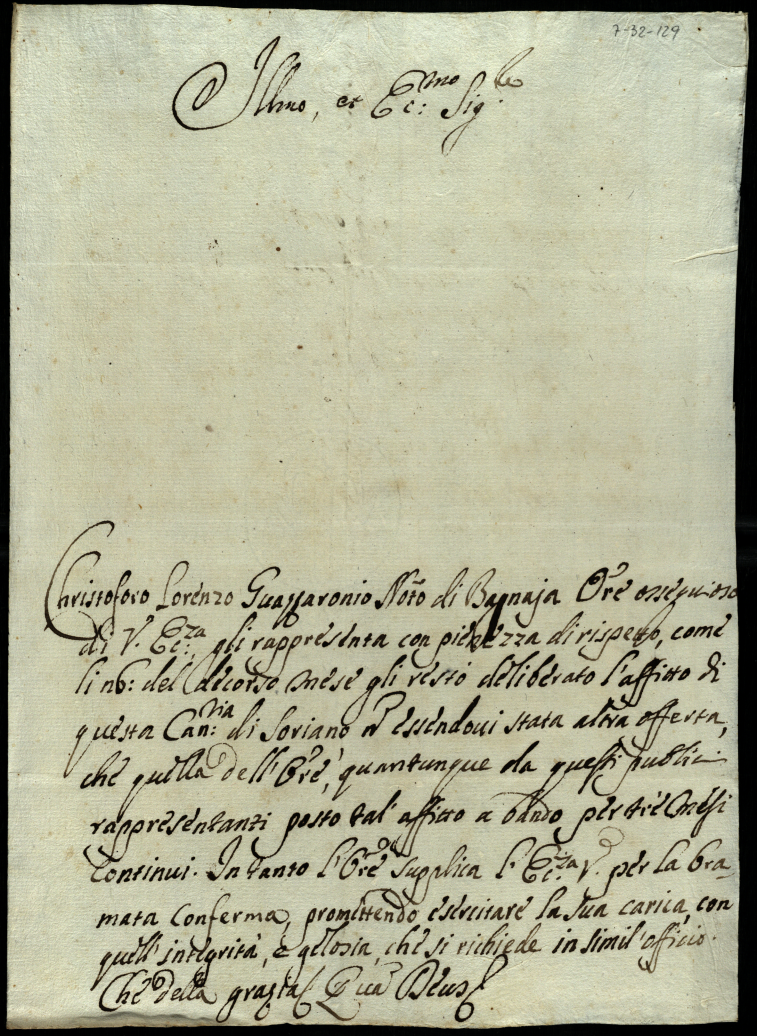 7-32-129
Illmo, et Ecc:mo Sig:re
Christoforo Lorenzo Guazzaronio Noto di Bagnaja Ore ossequioso
di V. Ecc:za gli rappresenta con pienezza di rispetto, come
li 26: del decorso mese gli restò deliberato l'affitto di
questa Can:ria di Soriano p essendoui stata altra offerta,
che quella dell'Ore, quantunque da questi publici
rappresentanti posto tal'affitto a bando per trè Mesi
continui. In tanto l'Ore supplica l'Ecc:za V. per la bra-
mata Conferma, promettendo esercitare la sua carica, con
quell'integrità, e gelosia, che si richiede in simil'officio.
Che della grazia Qua Deus